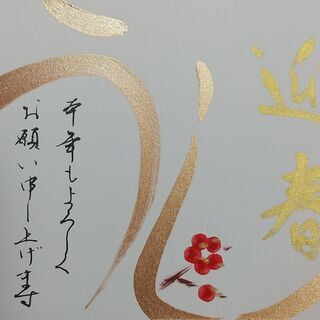 迎春
本年もよろしく
お願い申し上げます